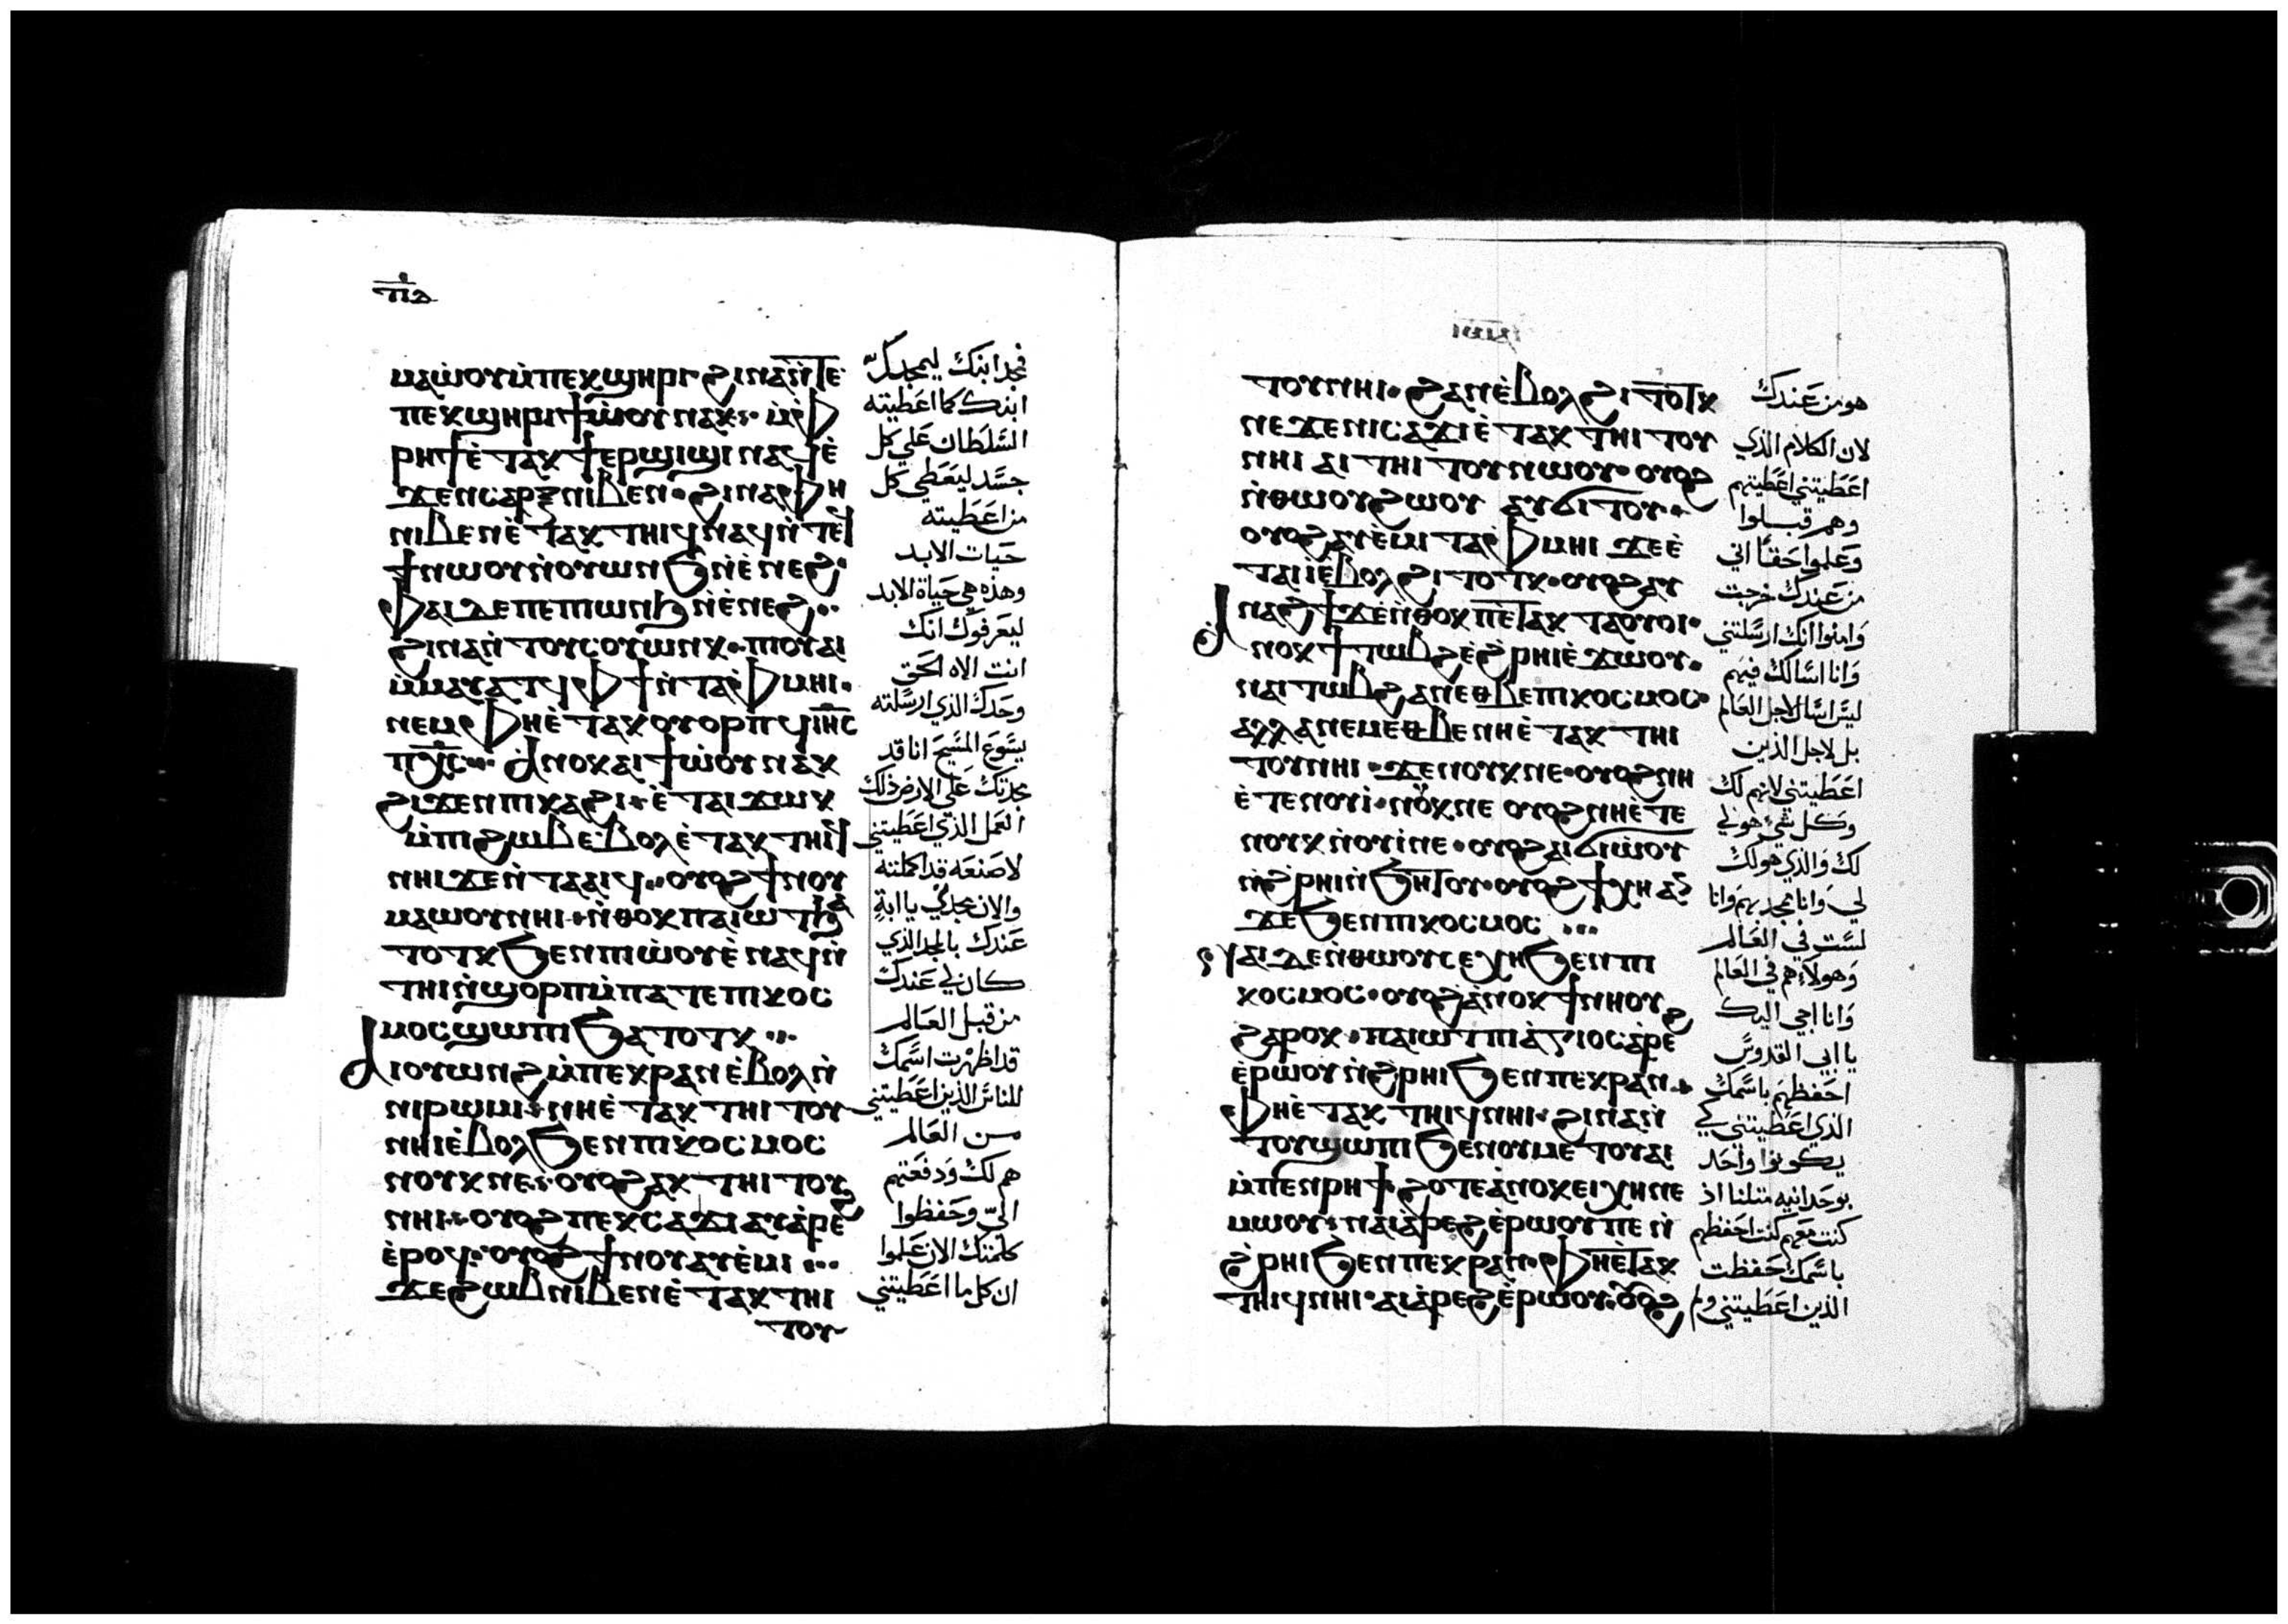 ⲙⲁⲱ̀ⲟⲩⲙ̀ⲡⲉⲕϣⲏⲣⲓϩⲓⲛⲁⲛ̀ⲧⲉ
ⲡⲉⲕϣⲏⲣⲓϯⲱ̀ⲟⲩⲛⲁⲕ⁘ⲙ̀ⲫ
ⲣⲏϯⲉ̀ⲧⲁⲕϯⲉⲣϣⲓϣⲓⲛⲁϥⲉ̀
ϫⲉⲛⲥⲁⲣⲝⲛⲓⲃⲉⲛ·ϩⲓⲛⲁⲫⲏ
ⲛⲓⲃⲉⲛⲉ̀ⲧⲁⲕⲧⲏⲓϥⲛⲁϥⲛ̀ⲧⲉϥ
ϯⲛⲱⲟⲩⲛ̀ⲟⲩⲱⲛϧⲛ̀ⲉ̀ⲛⲉϩ·
ⲫⲁⲓⲇⲉⲡⲉⲡⲓⲱⲛϧⲛ̀ⲉ̀ⲛⲉϩ··
ϩⲓⲛⲁⲛ̀ⲧⲟⲩⲥⲟⲩⲱⲛⲕ·ⲡⲓⲟⲩⲁⲓ
ⲙ̀ⲙⲁⲩⲁⲧϥⲫϯⲛ̀ⲧⲁⲫⲙⲏⲓ·
ⲛⲉⲙⲫⲏⲉ̀ⲧⲁⲕⲟⲩⲟⲣⲡϥⲓⲏ̅ⲥ̅
ⲡⲭ̅ⲥ̅⁘ⲁ̀ⲛⲟⲕⲁⲓϯⲱ̀ⲟⲩⲛⲁⲕ
ϩⲓϫⲉⲛⲡⲓⲕⲁϩⲓ·ⲉ̀ⲧⲁⲓϫⲱⲕ
ⲙ̀ⲡⲓϩⲱⲃⲉ̀ⲃⲟⲗⲉ̀ⲧⲁⲕⲧⲏⲓϥ
ⲛⲏⲓϫⲉⲛ̀ⲧⲁⲁⲓϥ··ⲟⲩⲟϩϯⲛⲟⲩ
ⲙⲁⲱⲟⲩⲛⲏⲓ·ⲛ̀ⲑⲟⲕⲡⲁⲓⲱⲧϧⲁ
ⲧⲟⲧⲕϧⲉⲛⲡⲓⲱ̀ⲟⲩⲉ̀ⲛⲁϥⲛ̀
ⲧⲏⲓⲛ̀ϣⲟⲣⲡⲙ̀ⲡⲁⲧⲉⲡⲓⲕⲟⲥ
ⲙⲟⲥϣⲱⲡⲓϧⲁⲧⲟⲧⲕ⁘
ⲁⲓⲟⲩⲱⲛϩⲙ̀ⲡⲉⲕⲣⲁⲛⲉ̀ⲃⲟⲗⲛ̀
ⲛⲓⲣⲱⲙⲓ·ⲛⲏⲉ̀ⲧⲁⲕⲧⲏⲓⲧⲟⲩ
ⲛⲏⲓⲉ̀ⲃⲟⲗϧⲉⲛⲡⲓⲕⲟⲥⲙⲟⲥ
ⲛⲟⲩⲕⲛⲉ·ⲟⲩⲟϩⲁⲕⲧⲏⲓⲧⲟⲩ
ⲛⲏⲓ·ⲟⲩⲟϩⲡⲉⲕⲥⲁϫⲓⲁⲩⲁ̀ⲣⲉϩ
ⲉ̀ⲣⲟϥ·ⲟⲩⲟϩϯⲛⲟⲩⲁⲩⲉ̀ⲙⲓ⁘
ϫⲉϩⲱⲃⲛⲓⲃⲉⲛⲉ̀ⲧⲁⲕⲧⲏⲓ
ⲧⲟⲩ
فمجد ابنك ليمجدك
ابنك كما اعطيته
السلطان علي كل
جسد ليعطي كل
من اعطيته
حيات الابد
وهذه هي حياة الابد
ليعرفوك انك
انت الاه الحق
وحدك الذي ارسلته
يسوع المسيح انا قد
مجدتك علي الارض ذلك
العمل الذي اعطيتني
لاصنعه قد اكملته
والان مجدني يا ابة
عندك بالمجد الذي
كان لي عندك
من قبل العالم
قد اظهرت اسمك
للناس الذين اعطيتني
من العالم
هم لك ودفعتهم
الي وحفظوا
كلمتك الان علموا
ان كل ما اعطيتني
ⲧⲟⲩⲛⲏⲓ·ϩⲁⲛⲉ̀ⲃⲟⲗϩⲓⲧⲟⲧⲕ
ⲛⲉϫⲉⲛⲓⲥⲁϫⲓⲉ̀ⲧⲁⲕⲧⲏⲓⲧⲟⲩ
ⲛⲏⲓⲁⲓⲧⲏⲓⲧⲟⲩⲛⲱⲟⲩ·ⲟⲩⲟϩ
ⲛ̀ⲑⲱⲟⲩϩⲱⲟⲩⲁⲩϭⲓⲧⲟⲩ··
ⲟⲩⲟϩⲁⲩⲉ̀ⲙⲓⲧⲁⲫⲙⲏⲓϫⲉⲉ̀
ⲧⲁⲓⲓ̀ⲉ̀ⲃⲟⲗϩⲓⲧⲟⲧⲕ·ⲟⲩⲟϩⲁⲩ
ⲛⲁϩϯϫⲉⲛ̀ⲑⲟⲕⲡⲉ̀ⲧⲁⲕⲧⲁⲟⲩⲟⲓ·
ⲁ̀ⲛⲟⲕϯⲧⲱⲃϩⲉ̀ϩⲣⲏⲓⲉ̀ϫⲱⲟⲩ·
ⲛⲁⲓⲧⲱⲃϩⲁⲛⲉⲑⲃⲉⲡⲓⲕⲟⲥⲙⲟⲥ·
ⲁⲗⲗⲁⲛⲉⲙⲉⲑⲃⲉⲛⲏⲉ̀ⲧⲁⲕⲧⲏⲓ
ⲧⲟⲩⲛⲏⲓ·ϫⲉⲛⲟⲩⲕⲛⲉ·ⲟⲩⲟϩⲛⲏ
ⲉ̀ⲧⲉⲛⲟⲩⲓ̀·ⲛⲟⲩⲕⲛⲉⲟⲩⲟϩⲛⲏⲉ̀ⲧⲉ
ⲛⲟⲩⲕⲛ̀ⲟⲩⲓ̀ⲛⲉ·ⲟⲩⲟϩⲁⲓϭⲓⲱ̀ⲟⲩ
ⲛ̀ϩⲣⲏⲓⲛ̀ϧⲏⲧⲟⲩ·ⲟⲩⲟϩϯⲭⲏⲁⲛ
ϫⲉϧⲉⲛⲡⲓⲕⲟⲥⲙⲟⲥ⁘
ⲟⲩⲁⲓⲇⲉⲛ̀ⲑⲱⲟⲩⲥⲉⲭⲏϧⲉⲛⲡⲓ
ⲕⲟⲥⲙⲟⲥ·ⲟⲩⲟϩⲁ̀ⲛⲟⲕϯⲛⲏⲟⲩ
ϩⲁⲣⲟⲕ·ⲡⲁⲓⲱⲧⲡⲓⲁ̀ⲅⲓⲟⲥⲁ̀ⲣⲉϩ
ⲉ̀ⲣⲱⲟⲩⲛ̀ϩⲣⲏⲓϧⲉⲛⲡⲉⲕⲣⲁⲛ·
ⲫⲏⲉ̀ⲧⲁⲕⲧⲏⲓϥⲛⲏⲓ·ϩⲓⲛⲁⲛ̀
ⲧⲟⲩϣⲱⲡⲓϧⲉⲛⲟⲩⲙⲉⲧⲟⲩⲁⲓ
ⲙ̀ⲡⲉⲛⲣⲏϯϩⲟⲧⲉⲁ̀ⲛⲟⲕⲉⲓⲭⲏⲛⲉ
ⲙⲱⲟⲩ·ⲛⲁⲓⲁ̀ⲣⲉϩⲉ̀ⲣⲱⲟⲩⲡⲉⲛ̀
ϩⲣⲏⲓϧⲉⲛⲡⲉⲕⲣⲁⲛ·ⲫⲏⲉ̀ⲧⲁⲕ
ⲧⲏⲓϥⲛⲏⲓ·ⲁⲓⲁ̀ⲣⲉϩⲉ̀ⲣⲱⲟⲩ·ⲟⲩⲟϩ
هو من عندك
لان الكلام الذي
اعطيتني اعطيتهم
وهم قبلوا
وعلموا حقا اني
من عندك خرجت
وامنوا انك ارسلتني
وانا اسالك فيهم
ليس اسال لاجل العالم
بل لاجل الذين
اعطيتني لانهم لك
وكل شي هو لي
لك والذي هو لك
لي وانا ممجد بهم وانا
لست في العالم
وهولاء هم في العالم
وانا اجي اليك
يا ابي القدوس
احفظهم باسمك
الذي اعطيتني كي
يكونوا واحد
بوحدانيه مثلنا اذ
كنت معهم كنت احفظهم
باسمك حفظت
الذين اعطيتني ولم